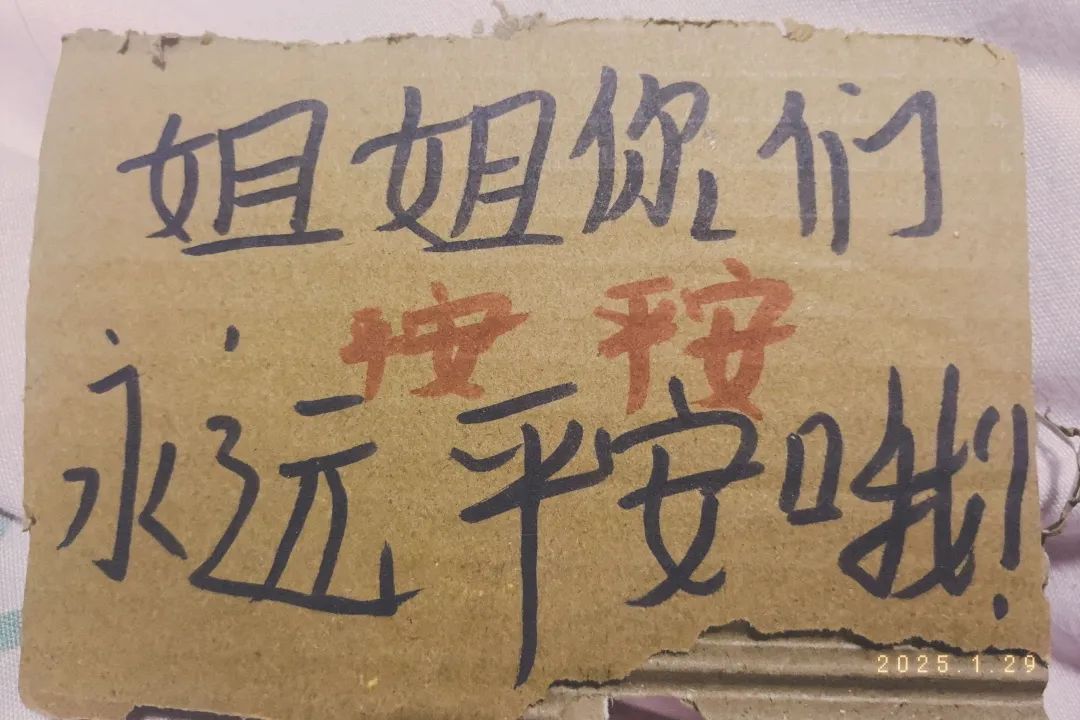 姐姐你们
平安 平安
永远平安哦!
2025.1.29